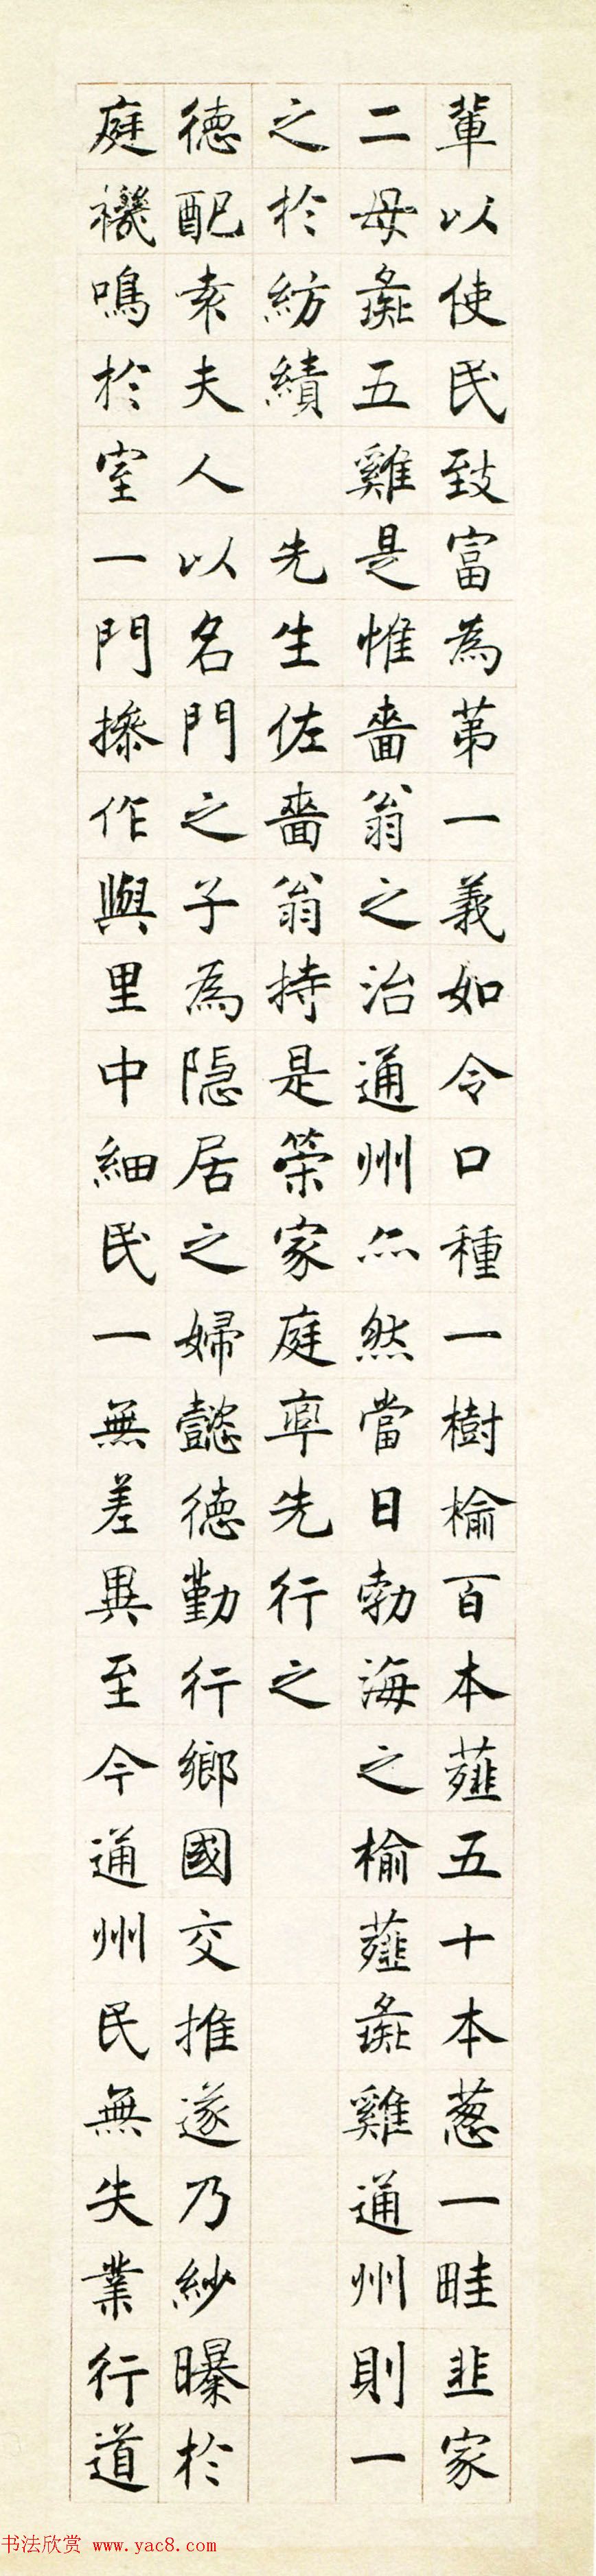 輩以使民致富為第一義如令口種一樹榆百本薤五十本葱一畦韭家
二母彘五雞是惟嗇翁之治通州亦然當日勃海之榆薤彘雞通州則一
之於紡績　先生佐嗇翁持是榮家庭率先行之
德配索夫人以名門之子為隱居之婦懿德勤行鄉國交推遂乃紗曝於
庭機鳴於室一門操作與里中細民一無差異至今通州民無失業行道
书法欣赏 www.yac8.com